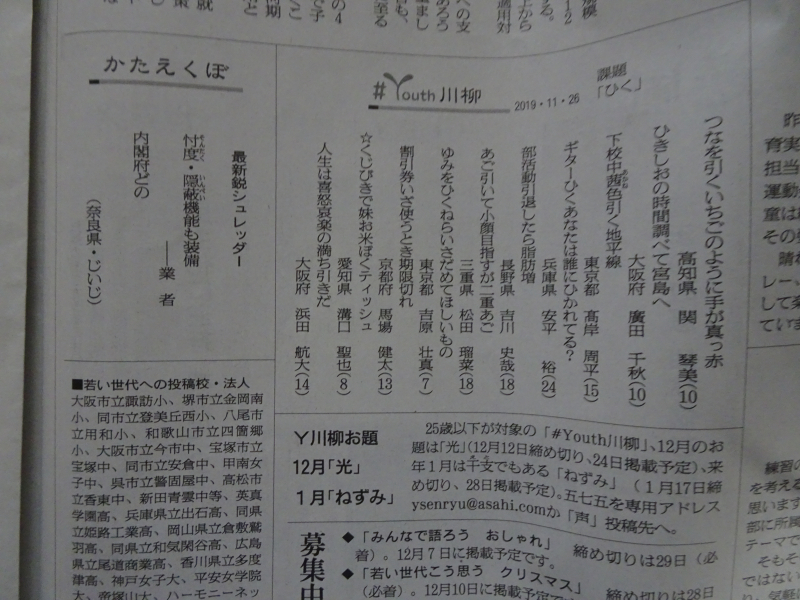 #Youth川柳
2019・11・26
課題
「ひく」
つなを引くいちごのように手が真っ赤
高知県 関 琴美(10)
ひきしおの時間調べて宮島へ
大阪府 廣田 千秋(10)
下校中茜色引く地平線
東京都 髙岸 周平(15)
ギターひくあなたは誰にひかれてる?
兵庫県 安平 裕(24)
部活動引退したら脂肪増
長野県 吉川 史哉(18)
あご引いて小顔目指すが二重あご
三重県 松田 瑠菜(18)
ゆみをひくねらいさだめてほしいもの
東京都 吉原 壮真(7)
割引券いざ使うとき期限切れ
京都府 馬場 健太(13)
☆くじびきで妹お米ぼくティッシュ
愛知県 溝口 聖也(8)
人生は喜怒哀楽の満ち引きだ
大阪府 浜田 航大(14)
かたえくぼ
最新鋭シュレッダー
忖度・隠蔽機能も装備
――業 者
内閣府どの
(奈良県・じいじ)
■若い世代への投稿校・法人
大阪市立諏訪小、堺市立金岡南
小、同市立登美丘西小、八尾市
立用和小、和歌山市立四箇郷
小、大阪市立今市中、宝塚市立
宝塚中、同市立安倉中、甲南女
子中、呉市立警固屋中、高松市
立香東中、新田青雲中等、英真
学園高、兵庫県立出石高、同県
立姫路工業高、岡山県立倉敷鷲
羽高、同県立和気閑谷高、広島
県立尾道商業高、香川県立多度
津高、神戸女子大、平安女学院
大、帝塚山大、ハーモニーネッ
Y川柳お題
12月「光」
1月「ねずみ」
25歳以下が対象の「#Youth川柳」、12月のお
題は「光」(12月12日締め切り、24日掲載予定)、来
年1月は干支でもある「ねずみ」(1月17日締
め切り、28日掲載予定)。五七五を専用アドレス
ysenryu@asahi.comか「声」投稿先へ。
募集中
◆「みんなで語ろう おしゃれ」 締め切りは29日(必
着)。12月7日に掲載予定です。
◆「若い世代こう思う クリスマス」 締め切りは28日
(必着)。12月10日に掲載予定